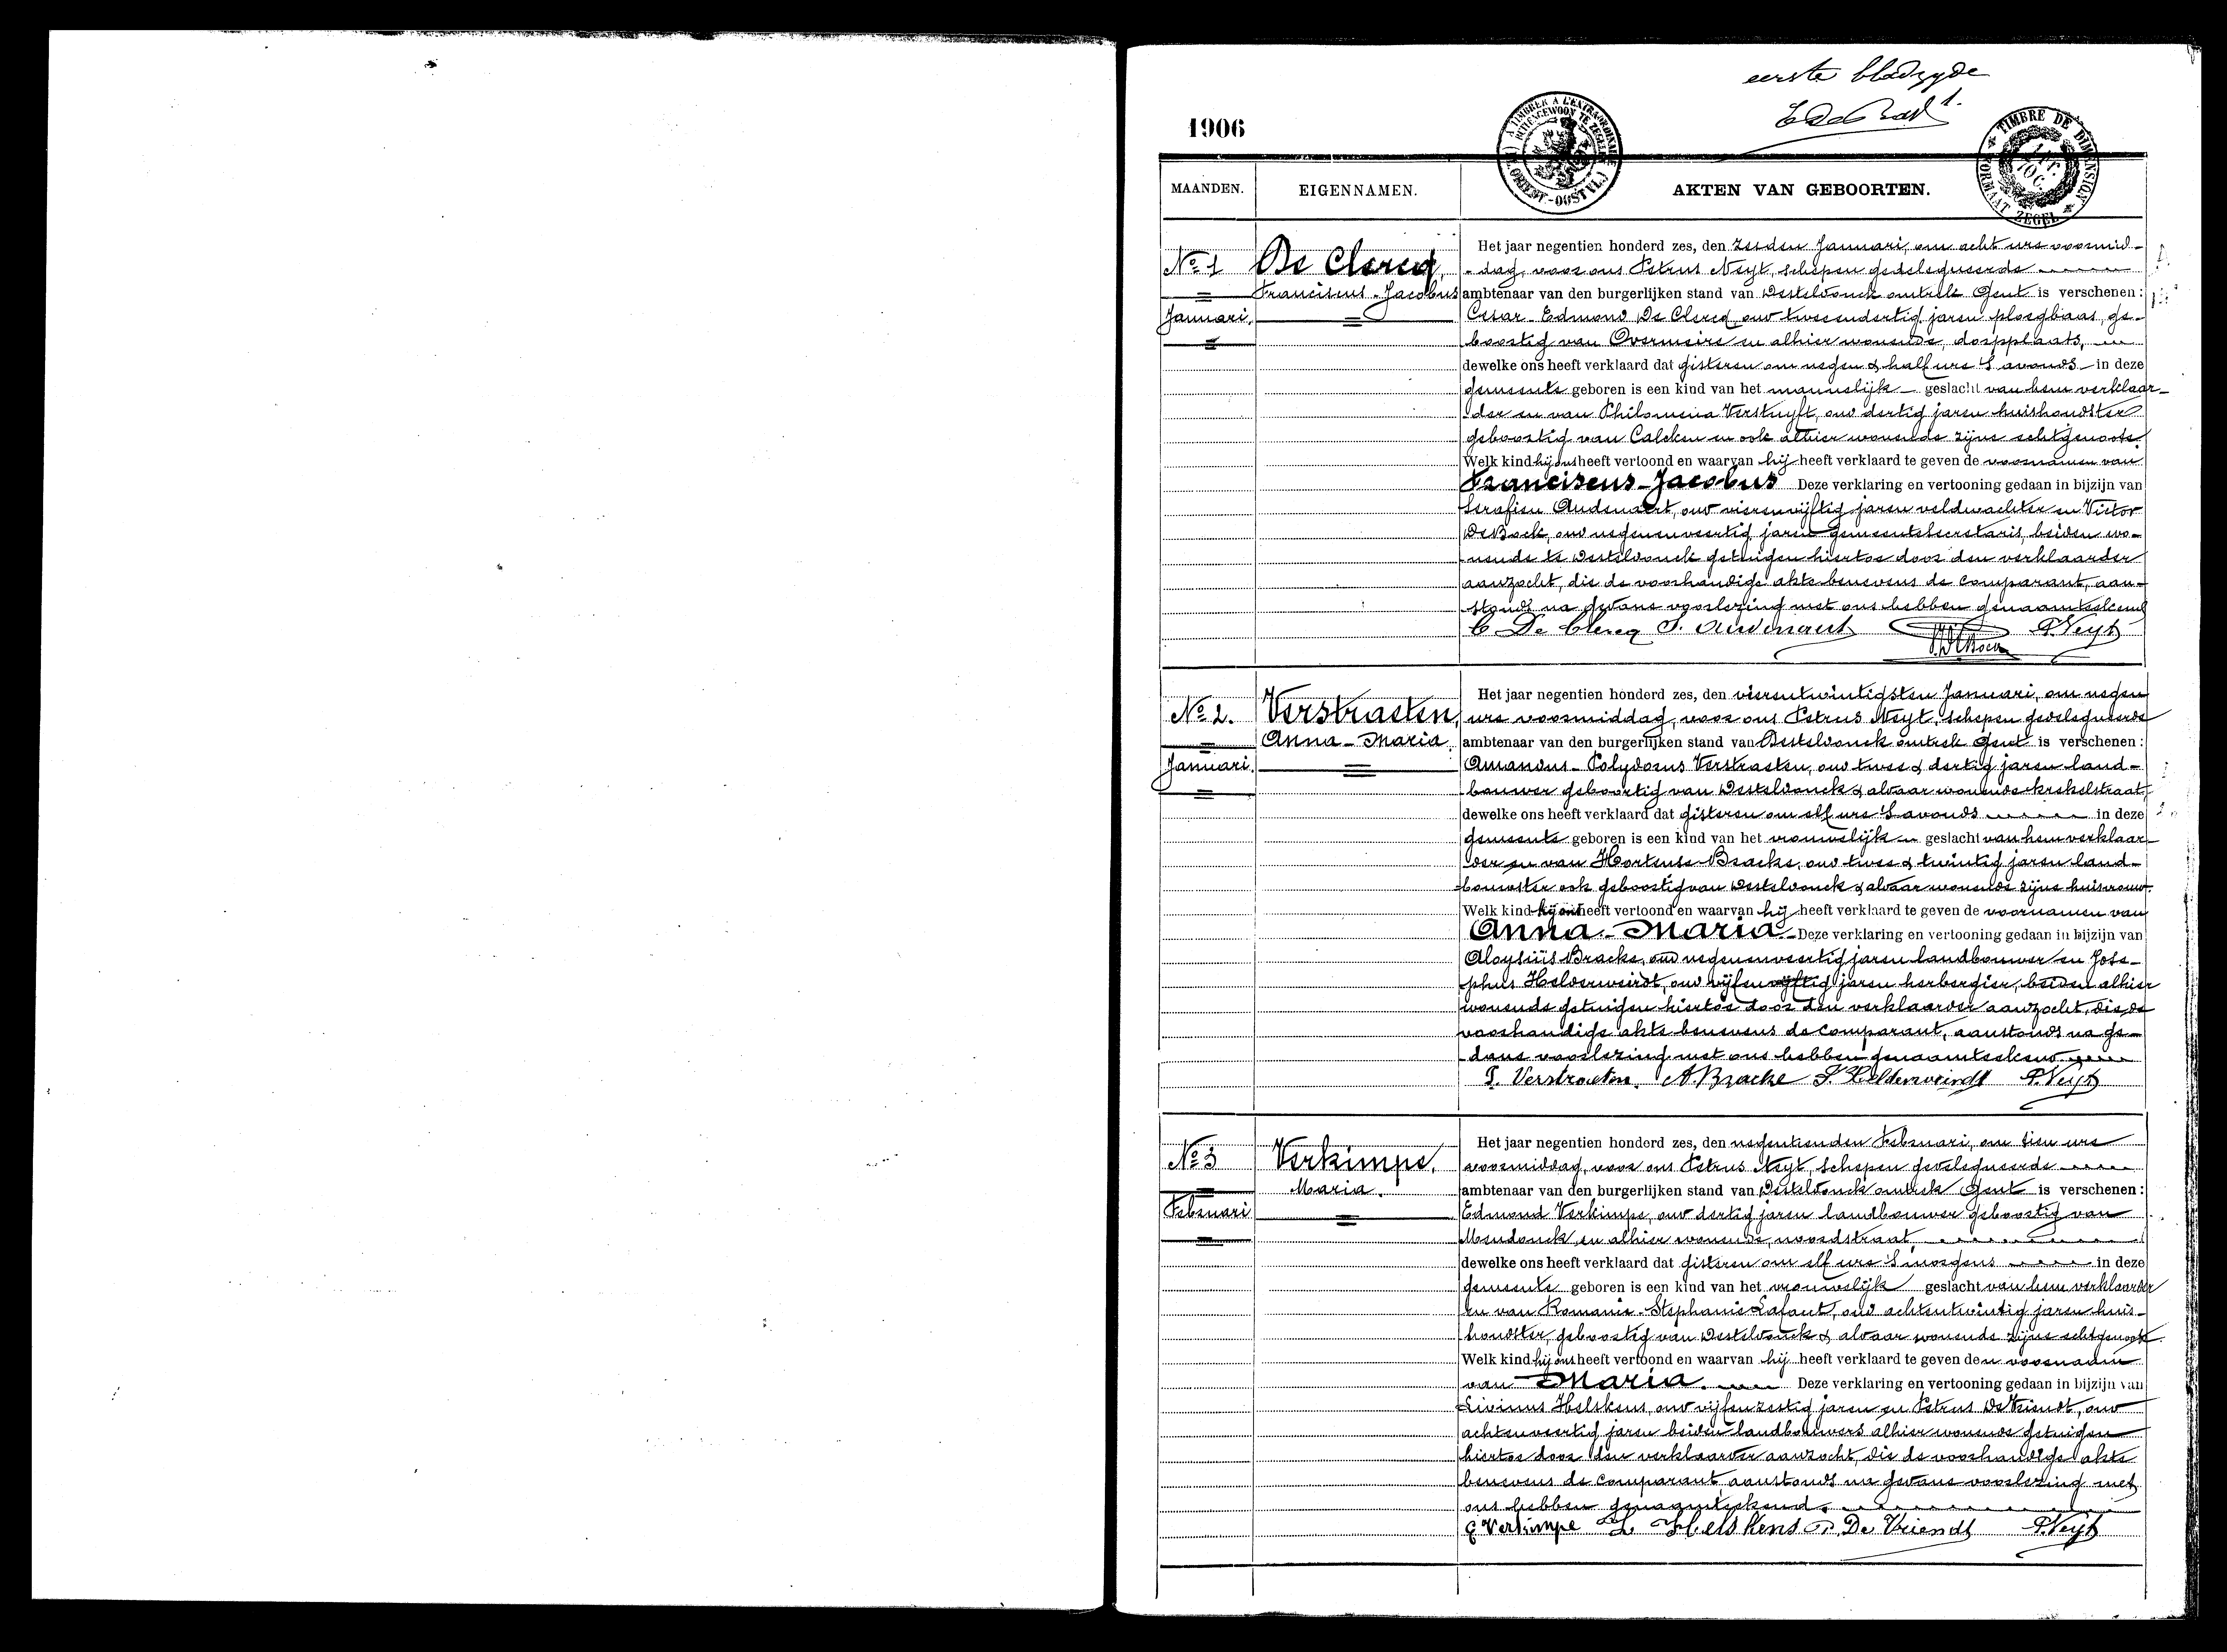 eerste bladzyde
1.
1906
TIMBRER A L'EXTRAORDINAIRE
BUITENGEWOON TE ZEGELEN
(FL. ORIENT.-OOST VL.)
TIMBRE DE DIMENSION
FORMAAT ZEGEL
MAANDEN. EIGENNAMEN. AKTEN VAN GEBOORTEN.
No 1
Januari.
De Clercq,
Franciscus-Jacobus
Het jaar negentien honderd zes, den zesden Januari, om acht ure voormid-
-dag, voor ons Petrus Neyt, schepen gedelegueerde
ambtenaar van den burgerlijken stand van Desteldonck omtrek Gent is verschenen:
Cesar-Edmond De Clercq, oud tweeendertig jaren ploegbaas, ge-
boortig van Overmeire en alhier wonende, dorpplaats,
dewelke ons heeft verklaard dat gisteren om negen & half ure 's avonds in deze
gemeente geboren is een kind van het mannelijk geslacht van hem verklaar-
der en van Philomena Verstuyft, oud dertig jaren huishoudster
geboortig van Calcken en ook alhier wonende zijne echtgenoote.
Welk kind hij ons heeft vertoond en waarvan hij heeft verklaard te geven de voornamen van
Franciscus-Jacobus Deze verklaring en vertooning gedaan in bijzijn van
Serafien Audenaert, oud vierenvijftig jaren veldwachter en Victor
DeBock, oud negenenveertig jaren gemeentesecretaris, beiden wo-
nende te Desteldonck getuigen hiertoe door den verklaarder
aanzocht, die de voorhandige akte benevens de comparant, aan-
stonds na gedane voorlezing met ons hebben genaamteekend
C De Clercq S. Audenaert P. Neyt
No 2.
Januari.
Verstraeten,
Anna-Maria.
Het jaar negentien honderd zes, den vierentwintigsten Januari, om negen
ure voormiddag, voor ons Petrus Neyt, schepen gedelegueerde
ambtenaar van den burgerlijken stand van Desteldonck omtrek Gent is verschenen:
Amandus-Polydorus Verstraeten, oud twee & dertig jaren land-
bouwer geboortig van Desteldonck & aldaar wonende krekelstraat,
dewelke ons heeft verklaard dat gisteren om elf ure 's avonds in deze
gemeente geboren is een kind van het vrouwelijk geslacht van hem verklaar-
der en van Hortense Bracke, oud twee & twintig jaren land-
bouwster ook geboortig van Desteldonck & aldaar wonende zijne huisvrouw.
Welk kind hij ons heeft vertoond en waarvan hij heeft verklaard te geven de voornamen van
Anna-Maria Deze verklaring en vertooning gedaan in bijzijn van
Aloysiüs Bracke, oud negenenveertig jaren landbouwer en Jose-
phus Helderweirdt, oud vijfenvijftig jaren herbergier, beiden alhier
wonende getuigen hiertoe door den verklaarder aanzocht, die de
voorhandige akte benevens de comparant, aanstonds na ge-
dane voorlezing met ons hebben genaamteekend
P. Verstraeten. A. Bracke J. Helderweirdt P. Neyt
No 3
Februari
Verkimpe,
Maria.
Het jaar negentien honderd zes, den negentienden Februari, om tien ure
voormiddag, voor ons Petrus Neyt, schepen gedelegueerde
ambtenaar van den burgerlijken stand van Desteldonck omtrek Gent is verschenen:
Edmond Verkimpe, oud dertig jaren landbouwer geboortig van
Mendonck en alhier wonende, noordstraat,
dewelke ons heeft verklaard dat gisteren om elf ure 's morgens in deze
gemeente geboren is een kind van het vrouwelijk geslacht van hem verklaarder
en van Romanie-Stephanie Lafaut, oud achtentwintig jaren huis-
houdster, geboortig van Desteldonck & aldaar wonende zijne echtgenoote.
Welk kind hij ons heeft vertoond en waarvan hij heeft verklaard te geven den voornaam
van Maria. Deze verklaring en vertooning gedaan in bijzijn van
Livinus Helskens, oud vijfenzestig jaren en Petrus De Vriendt, oud
achtenveertig jaren beiden landbouwers alhier wonende getuigen
hiertoe door den verklaarder aanzocht, die de voorhandige akte
benevens de comparant aanstonds na gedane voorlezing met
ons hebben genaamteekend.
E Verkimpe L. Helskens P. De Vriendt P. Neyt